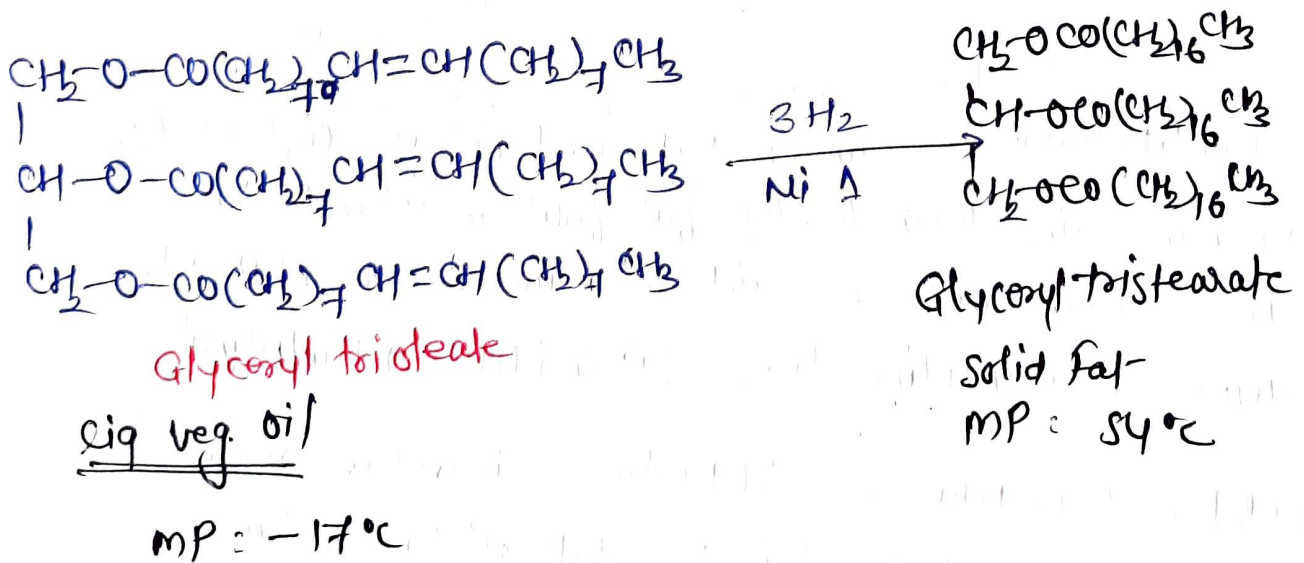 CH₂-O-CO(CH₂)₇CH=CH(CH₂)₇CH₃
CH-O-CO(CH₂)₇CH=CH(CH₂)₇CH₃
CH₂-O-CO(CH₂)₇CH=CH(CH₂)₇CH₃
Glyceryl trioleate
liq veg. oil
mp : -17°C
3 H₂
Ni Δ
CH₂-OCO(CH₂)₁₆CH₃
CH-OCO(CH₂)₁₆CH₃
CH₂-OCO(CH₂)₁₆CH₃
Glyceryl tristearate
Solid Fat
MP : 54°C